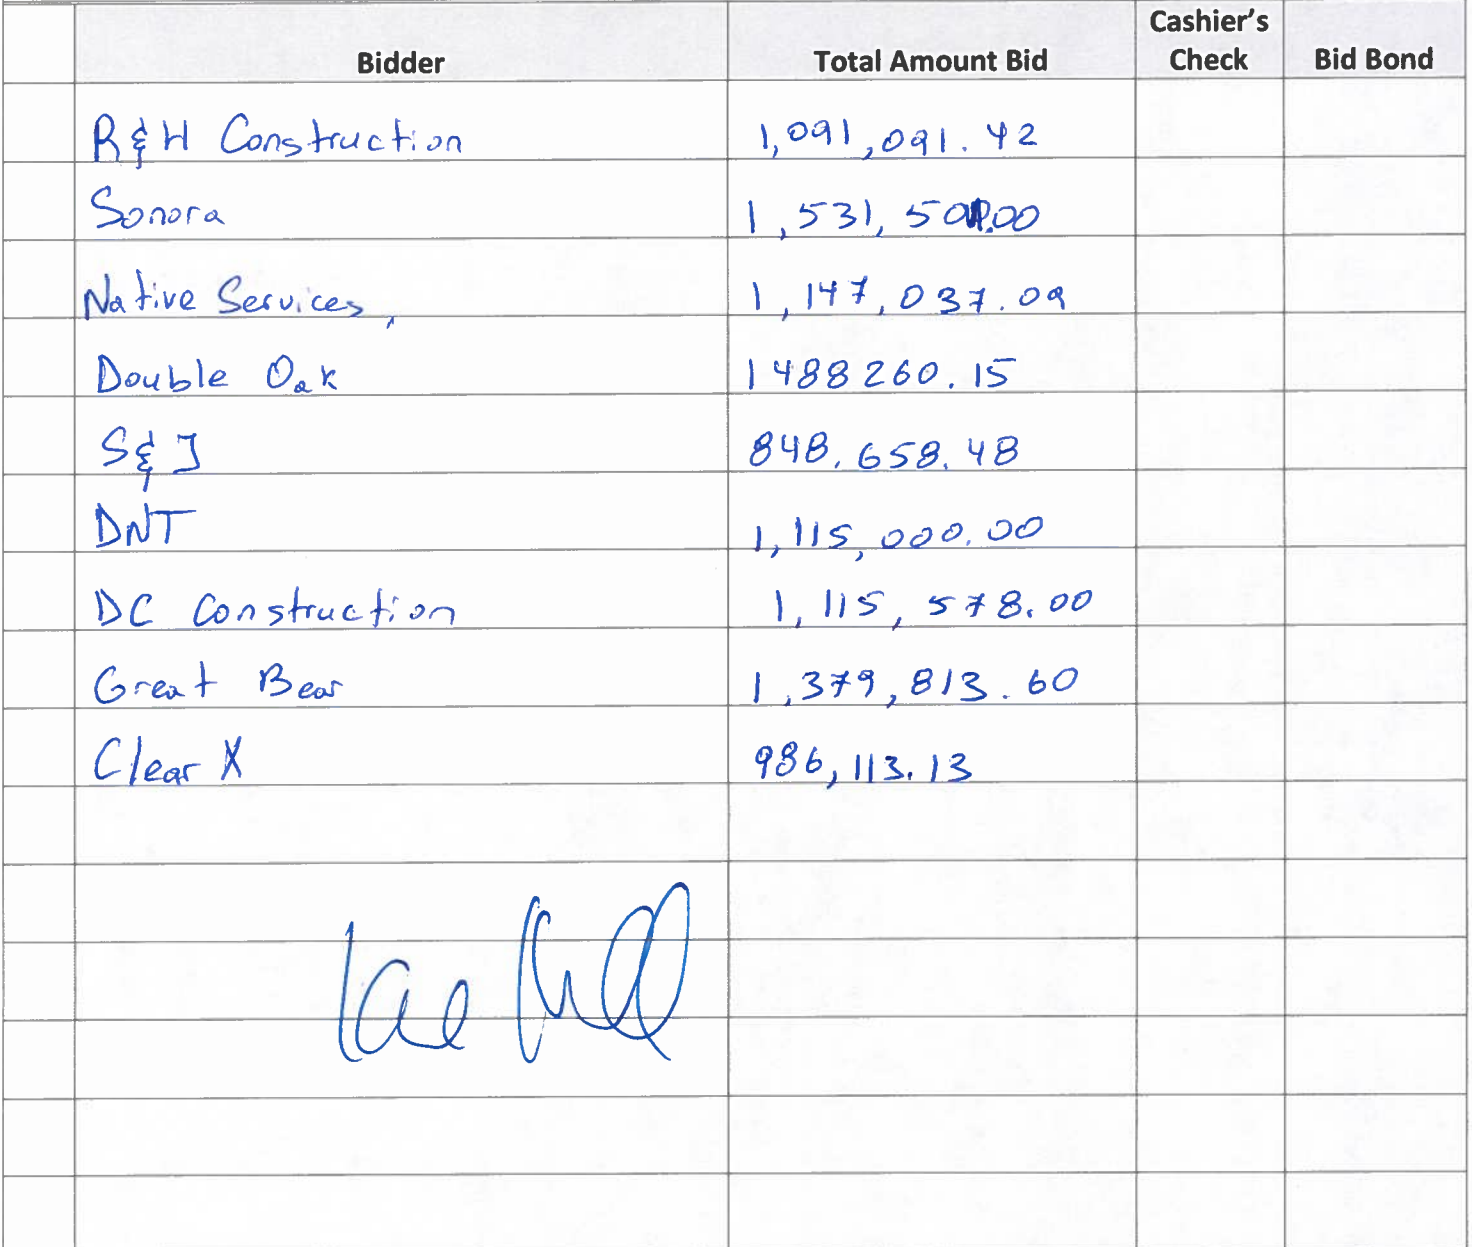 Bidder Total Amount Bid Cashier's Check Bid Bond
R&H Construction 1,091,091.42
Sonora 1,531,
Native Services, 1,147,037.09
Double Oak 1488260.15
S&J 848,658.48
DNT 1,115,000.00
DC Construction 1,115,578.00
Great Bear 1,379,813.60
Clear X 986,113.13